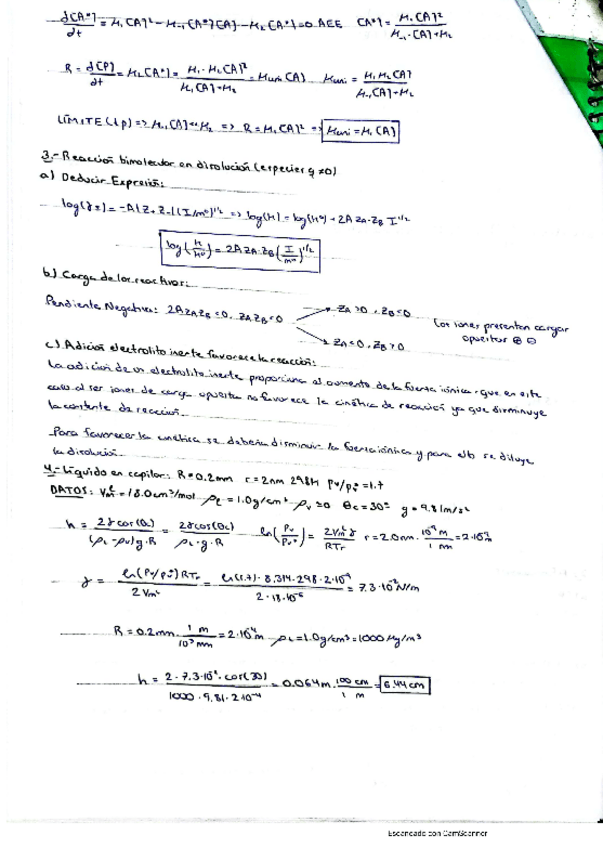 d[A*]/dt = k₁[A]² - k₋₁[A*][A] - k₂[A*] = 0 AEE [A*] = k₁[A]² / k₋₁·[A]+k₂
R = d[P]/dt = k₂[A*] = k₁·k₂[A]² / k₁[A]+k₂ = kuni[A] kuni = k₁k₂[A] / k₋₁[A]+k₂
LÍMITE (↓p) => k₋₁[A] << k₂ => R = k₁[A]² => kuni = k₁[A]
3.- Reacción bimolecular en disolución (especies q ≠ 0)
a) Deducir Expresión:
log(γ±) = -A|Z+Z-|(I/m⁰)^1/2 => log(k) = log(k⁰) + 2A ZA·ZB I^1/2
log(k/k⁰) = 2A ZA·ZB (I/m⁰)^1/2
b) Carga de los reactivos:
Pendiente Negativa: 2AZAZB<0, ZAZB<0
ZA>0, ZB<0
ZA<0, ZB>0
Los iones presentan cargas opuestas ⊕ ⊖
c) Adición electrolito inerte favorece la reacción:
La adición de un electrolito inerte proporciona al aumento de la fuerza iónica, que en este
caso al ser iones de carga opuesta no favorece la cinética de reacción ya que disminuye
la constante de reacción.
Para favorecer la cinética se debería disminuir la fuerza iónica y para ello se diluye
la disolución.
4.- Líquido en capilar: R=0.2mm r=2nm 298K Pv/Pv*=1.7
DATOS: Vm^L=18.0cm³/mol ρL=1.0g/cm³ ρv≈0 θc=30º g=9.81m/s²
h = 2γcos(θc) / (ρL-ρv)g·R = 2γcos(θc) / ρL·g·R ln(Pv/Pv*) = 2Vm^Lγ / RTr r=2.0nm · 1m / 10⁹ nm = 2·10⁻⁹m
γ = ln(Pv/Pv*)RTr / 2Vm^L = ln(1.7)·8.314·298·2·10⁻⁹ / 2·18·10⁻⁶ = 7.3·10⁻²N/m
R=0.2mm · 1 m / 10³ mm = 2·10⁻⁴m ρL=1.0g/cm³=1000kg/m³
h = 2·7.3·10⁻²·cos(30) / 1000·9.81·2·10⁻⁴ = 0.064m · 100 cm / 1 m = 6.44cm
Escaneado con CamScanner